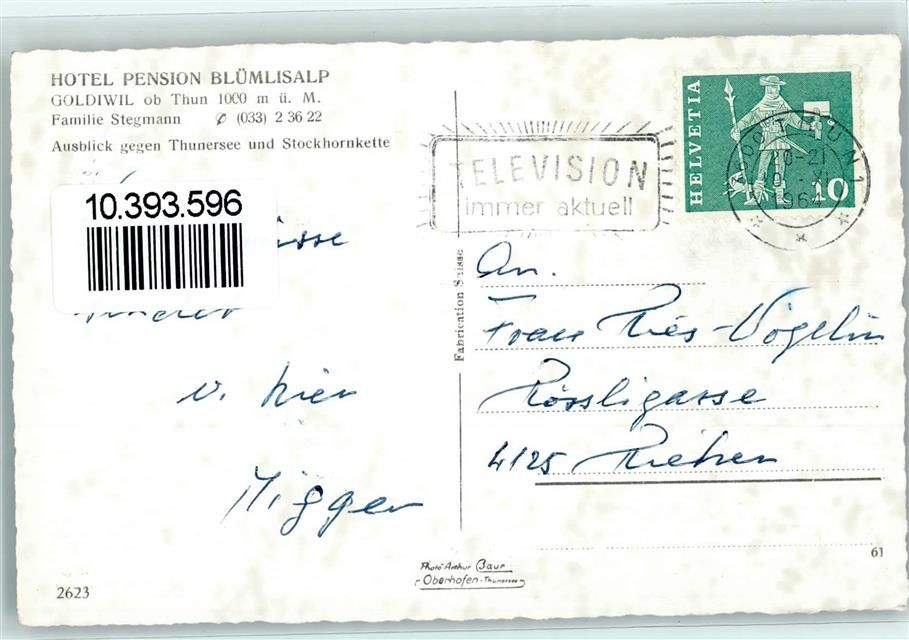 HOTEL PENSION BLÜMLISALP
GOLDIWIL ob Thun 1000 m ü. M.
Familie Stegmann ✆ (033) 2 36 22
Ausblick gegen Thunersee und Stockhornkette
10.393.596
v. hier
2623
Fabrication Suisse
Photo Arthur Baur
Oberhofen-Thunersee
TELEVISION
immer aktuell
HELVETIA
10
THUN 1
20-21
XI
196
An.
Frau Ries-Vögelin
Rössligasse
4125 Riehen
61